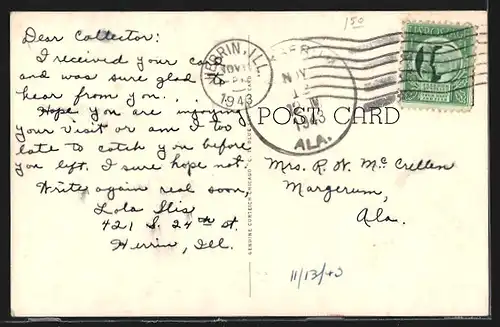 Dear Collector:
I received your card
and was sure glad to
hear from you.
Hope you are enjoying
your visit or am I too
late to catch you before
you left. I sure hope not.
Write again real soon,
Lola
421 S. 24th St.
Herrin, Ill.
150
HERRIN, ILL.
NOV
1943
NOV
1943
ALA.
POST CARD
Mrs. R. W. McCrellen
Margerum,
Ala.
11/13/43